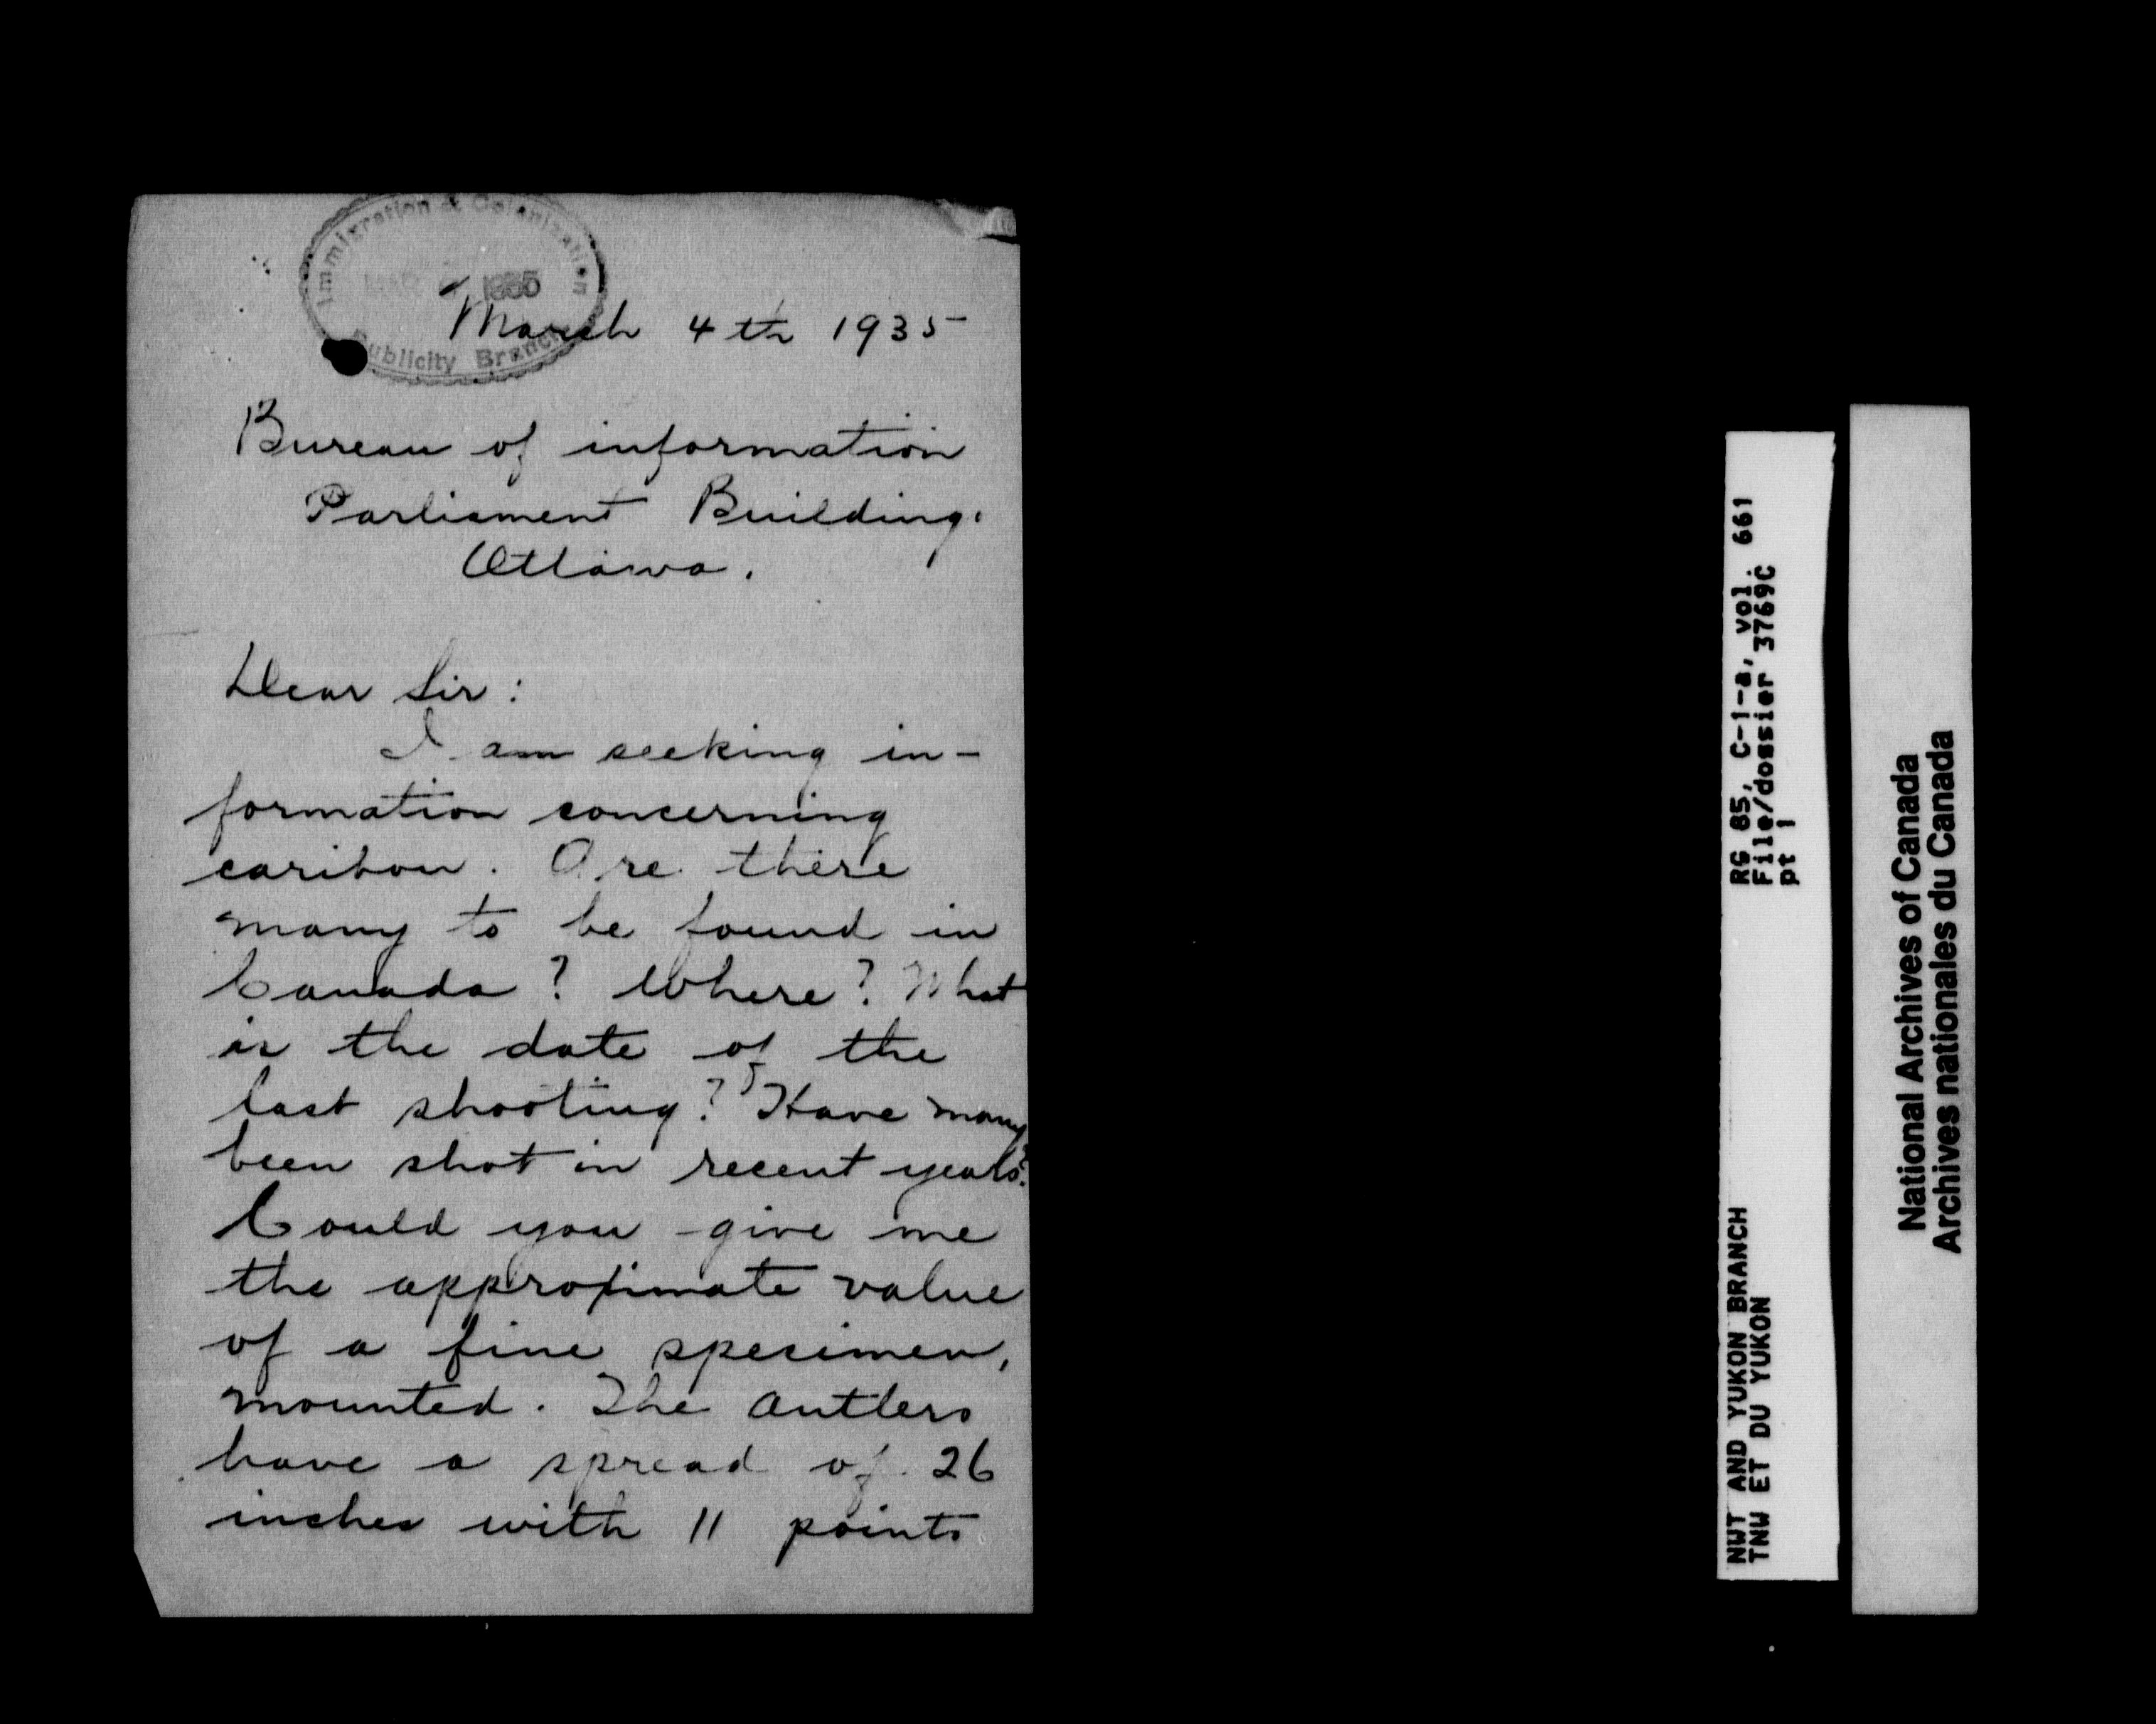 Immigration & Colonization
MAR 1935
Publicity Branch
March 4th 1935
Bureau of information
Parliament Building.
Ottawa.
Dear Sir:
I am seeking in-
formation concerning
caribou. Are there
many to be found in
Canada? Where? What
is the date of the
last shooting? Have many
been shot in recent years?
Could you give me
the approximate value
of a fine specimen,
mounted. The antlers
have a spread of 26
inches with 11 points
RG 85, C-1-a, vol. 661
File/dossier 3769C
pt 1
NWT AND YUKON BRANCH
TNW ET DU YUKON
National Archives of Canada
Archives nationales du Canada